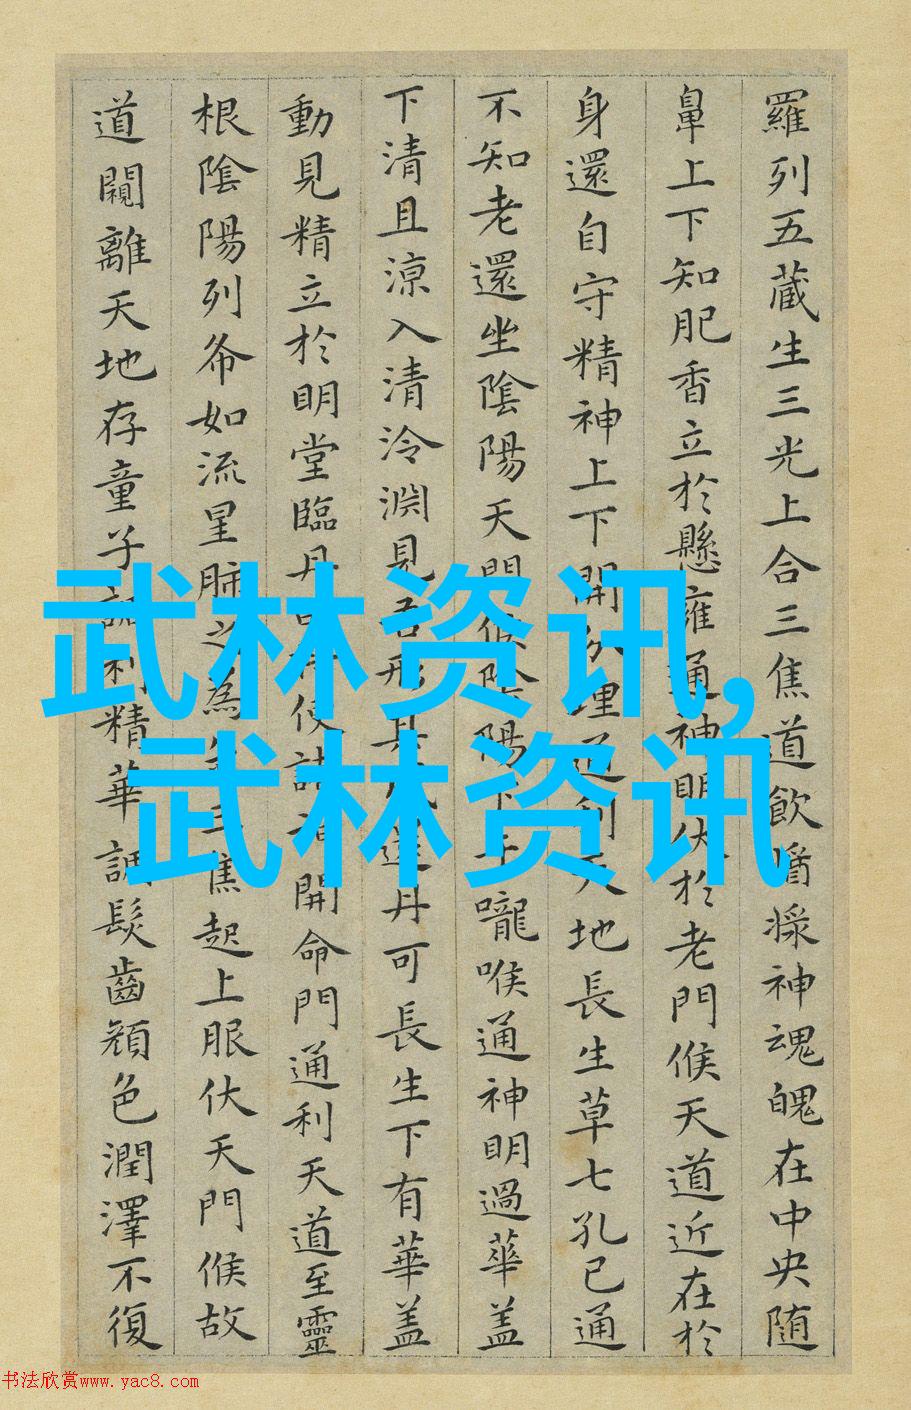 羅列五蔵生三光上合三焦道飲漿神魂魄在中央随
鼻上下知肥香立於懸雍通神明伏於老門候天道近在於
身還自守精神上下開分理通利天地長生草七孔已通
不知老還坐陰陽天門候陰陽下嚨喉通神明過華盖
下清且涼入清泠淵見吾形其成還丹可長生下有華盖
動見精立於明堂臨丹使諸開命門通利天道至靈
根陰陽列布如流星肺之為焦起上服伏天門候故
道闚離天地存童子調利精華調髮齒顔色潤澤不復
武林资讯,
武林资讯
书法欣赏www.yac8.com